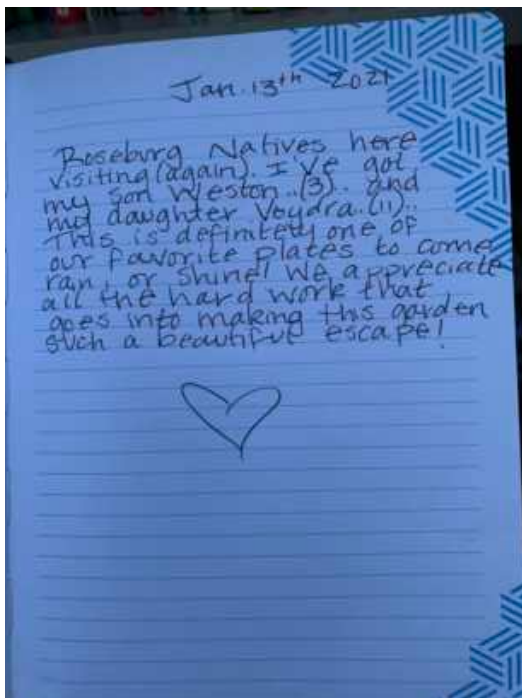 Jan. 13th 2021
Roseburg Natives here
visiting (again). I've got
my son Weston..(3).. and
my daughter Voydra.(11)..
This is definitely one of
our favorite plates to come
rain, or shine! We appreciate
all the hard work that
goes into making this garden
such a beautiful escape!